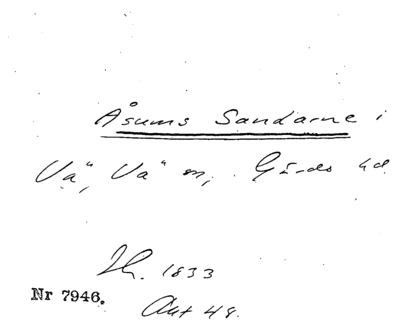 Åsums Sandarne i
Vä", Vä" sn, Gärds hd
1833
Nr 7946.
Akt 48.